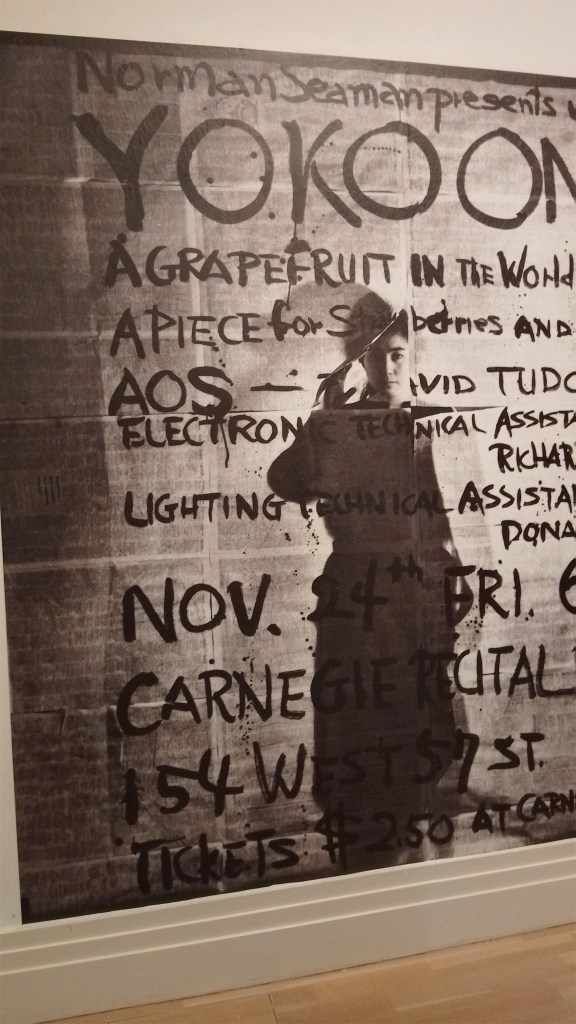 Norman Seaman presents
YOKO ON
A GRAPEFRUIT IN THE World
A PIECE for Strawberries AND
AOS — DAVID TUDO
ELECTRONIC TECHNICAL ASSISTA
RICHAR
LIGHTING TECHNICAL ASSISTA
DONA
NOV. 24th FRI. 6
CARNEGIE RECITAL
154 WEST 57 ST.
TICKETS $2.50 AT CARN